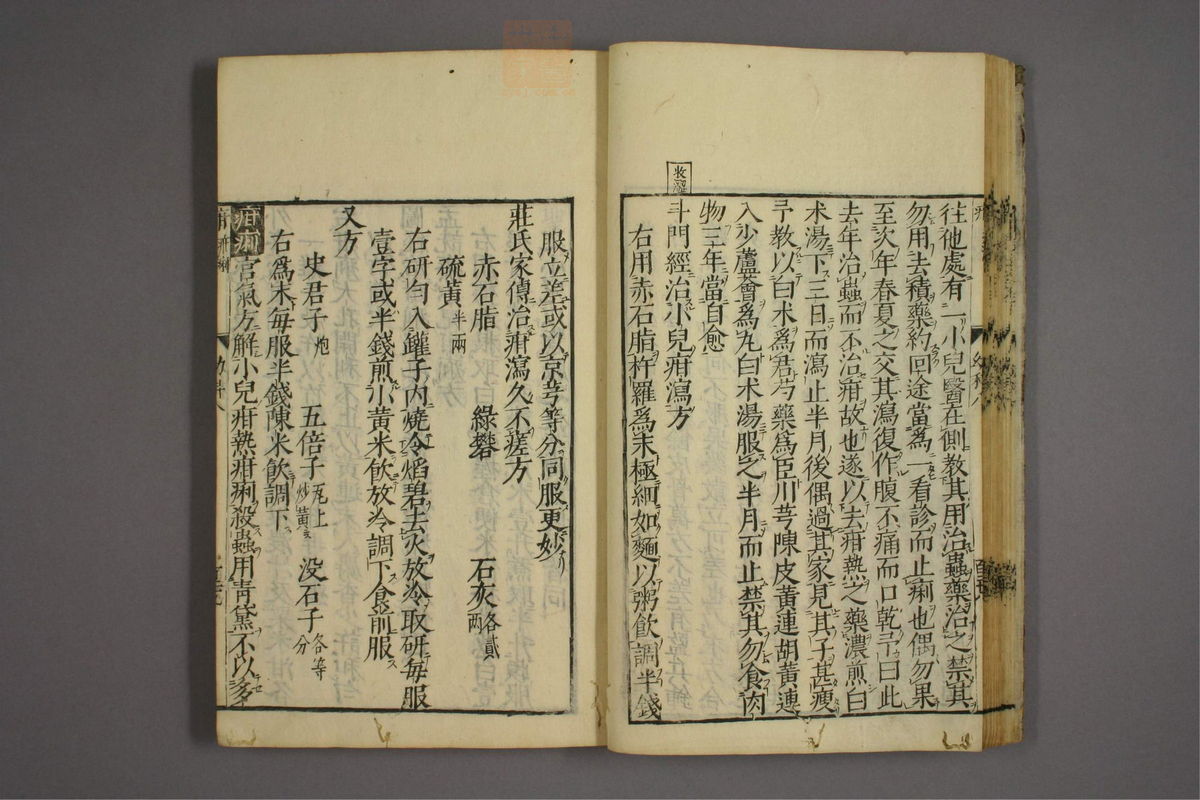 往他處有一小兒醫在側教其用治蟲藥治之禁其
勿用去積藥約回途當爲一看診而止痢也偶勿果
至次年春夏之交其瀉復作腹不痛而口乾予曰此
去年治蟲而不治疳故也遂以去疳熱之藥濃煎白
朮湯下三日而瀉止半月後偶過其家見其子甚瘦
予教以白朮爲君芍藥爲臣川芎陳皮黃連胡黃連
入少蘆薈爲丸白朮湯服之半月而止禁其勿食肉
物三年當自愈
收澀
斗門經治小兒疳瀉方
右用赤石脂杵羅爲末極細如麵以粥飲調半錢
服立差或以京芎等分同服更妙
莊氏家傳治疳瀉久不瘥方
赤石脂 綠礬 石灰各貳兩
硫黃半兩
右研勻入罐子內燒令焰碧去火放冷取研每服
壹字或半錢煎小黃米飲放冷調下食前服
又方
史君子炮 五倍子瓦上炒黃 没石子各等分
右爲末每服半錢陳米飲調下
疳痢宮氣方解小兒疳熱疳痢殺蟲用青黛不以多